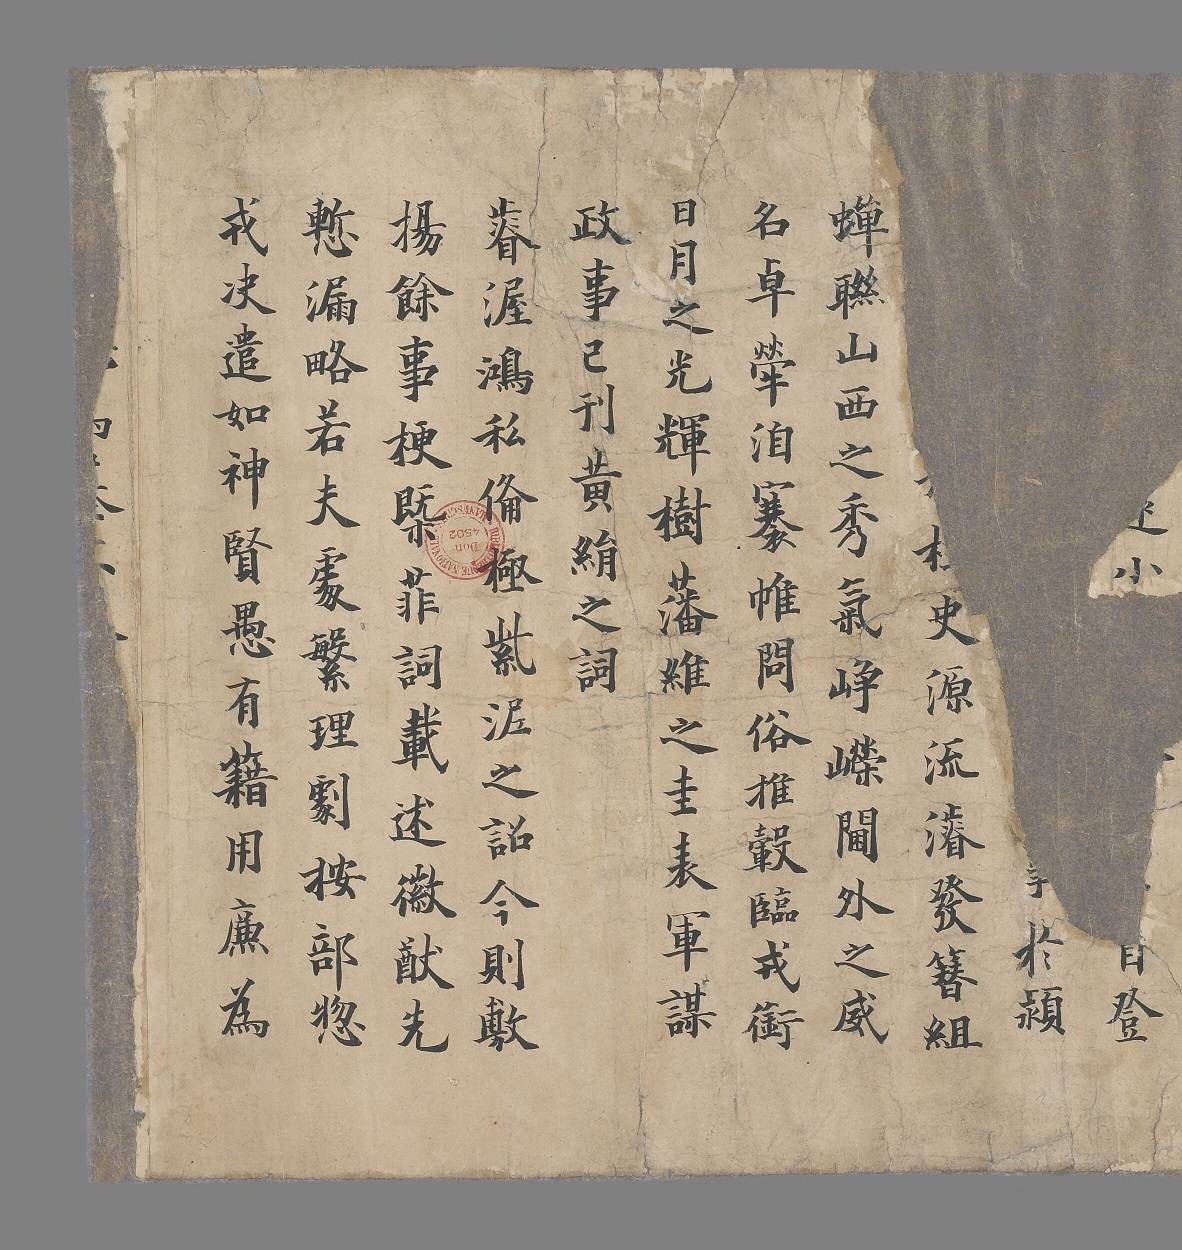 小 目登
於潁
史源流濬發簪組
蟬聯山西之秀氣崢嶸閫外之威
名卓犖洎褰帷問俗推轂臨戎銜
日月之光輝樹藩維之圭表軍謀
政事已刊黃絹之詞
睿渥鴻私備極紫泥之詔今則敷
揚餘事梗槩菲詞載述徽猷先
慙漏略若夫處繁理劇按部惣
戎決遣如神賢愚有籍用廉為